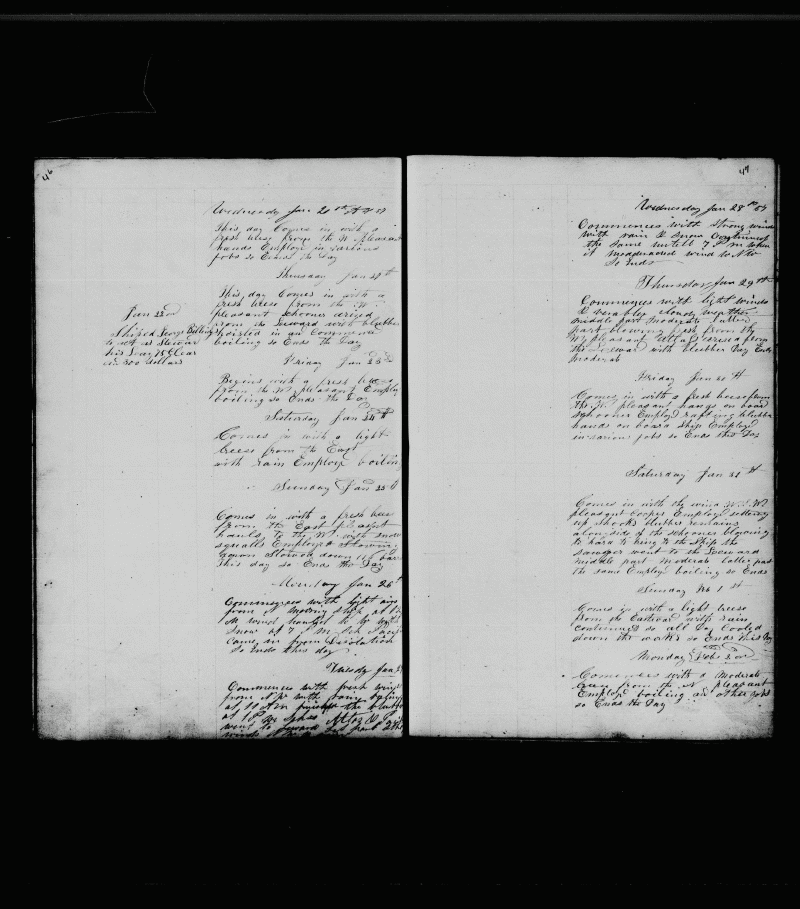 46
Wednesday Jan 21st
This day Comes in with a
fresh brese from the W. pleasant
hands Employe in various
jobs so Ends the Day
Thursday Jan 22th
This day Comes in with a
fresh brese from the W.
pleasant schooner arived
from the Leeward with blubber
boiling so Ends the Day
Jan 22nd
Shiped George Billing
to act as Steward
his Lay 75 Clear
in 300 dollars
Friday Jan 23rd
Begins with a fresh brese
from the W. pleasant Employ
boiling so Ends the Day
Saturday Jan 24th
Comes in with a light
breese from the East
with rain Employe boiling
Sunday Jan 25th
Comes in with a fresh brese
from the East pleasant
hauls to the W. with snow
squalls Employed stowing
down Stowed down
This day so Ends the Day
Monday Jan 26t
Commences with light airs
from
M wind hauled to with
Snow at 7 P M Sch
Came in from Desolation
so Ends this day
Tuesdy Jan 27
Commences with fresh wind
from N W with
at 11 A M the blubber
at 1 P M Schs
went to leeward last part
47
Wednesday Jan 28th 57
Commences with strong wind
with rain & Snow Continues
the same untill 7 P m when
it moderated wind to NW
So Ends
Thursday Jan 29th
Commences with light winds
& verables cloudy wether
middle part moderate Latter
part blowing fresh from the
W. pleasant arived from
the Leeward with blubber Day Ends
moderate
Friday Jan 30th
Comes in with a fresh brese from
the W. pleasant Gangs on board
schooner Employd rafting blubber
hands on board Ship Employd
in various jobs so Ends this Day
Saturday Jan 31st
Comes in with the wind W.S.W.
pleasant Cooper Employe setting
up shooks blubber remains
along side of the schooner blowing
to hard to bring to the Ship the
went to the Leeward
middle part moderate latter part
the same Employe boiling so Ends
Sunday Feb 1st
Comes in with a light breese
from the Eastward with rain
continued so all Day Cooled
down the works so Ends this Day
Monday Feb 2nd
Comences with a moderate
brese from the N pleasant
Employe boiling and other jobs
so Ends the Day